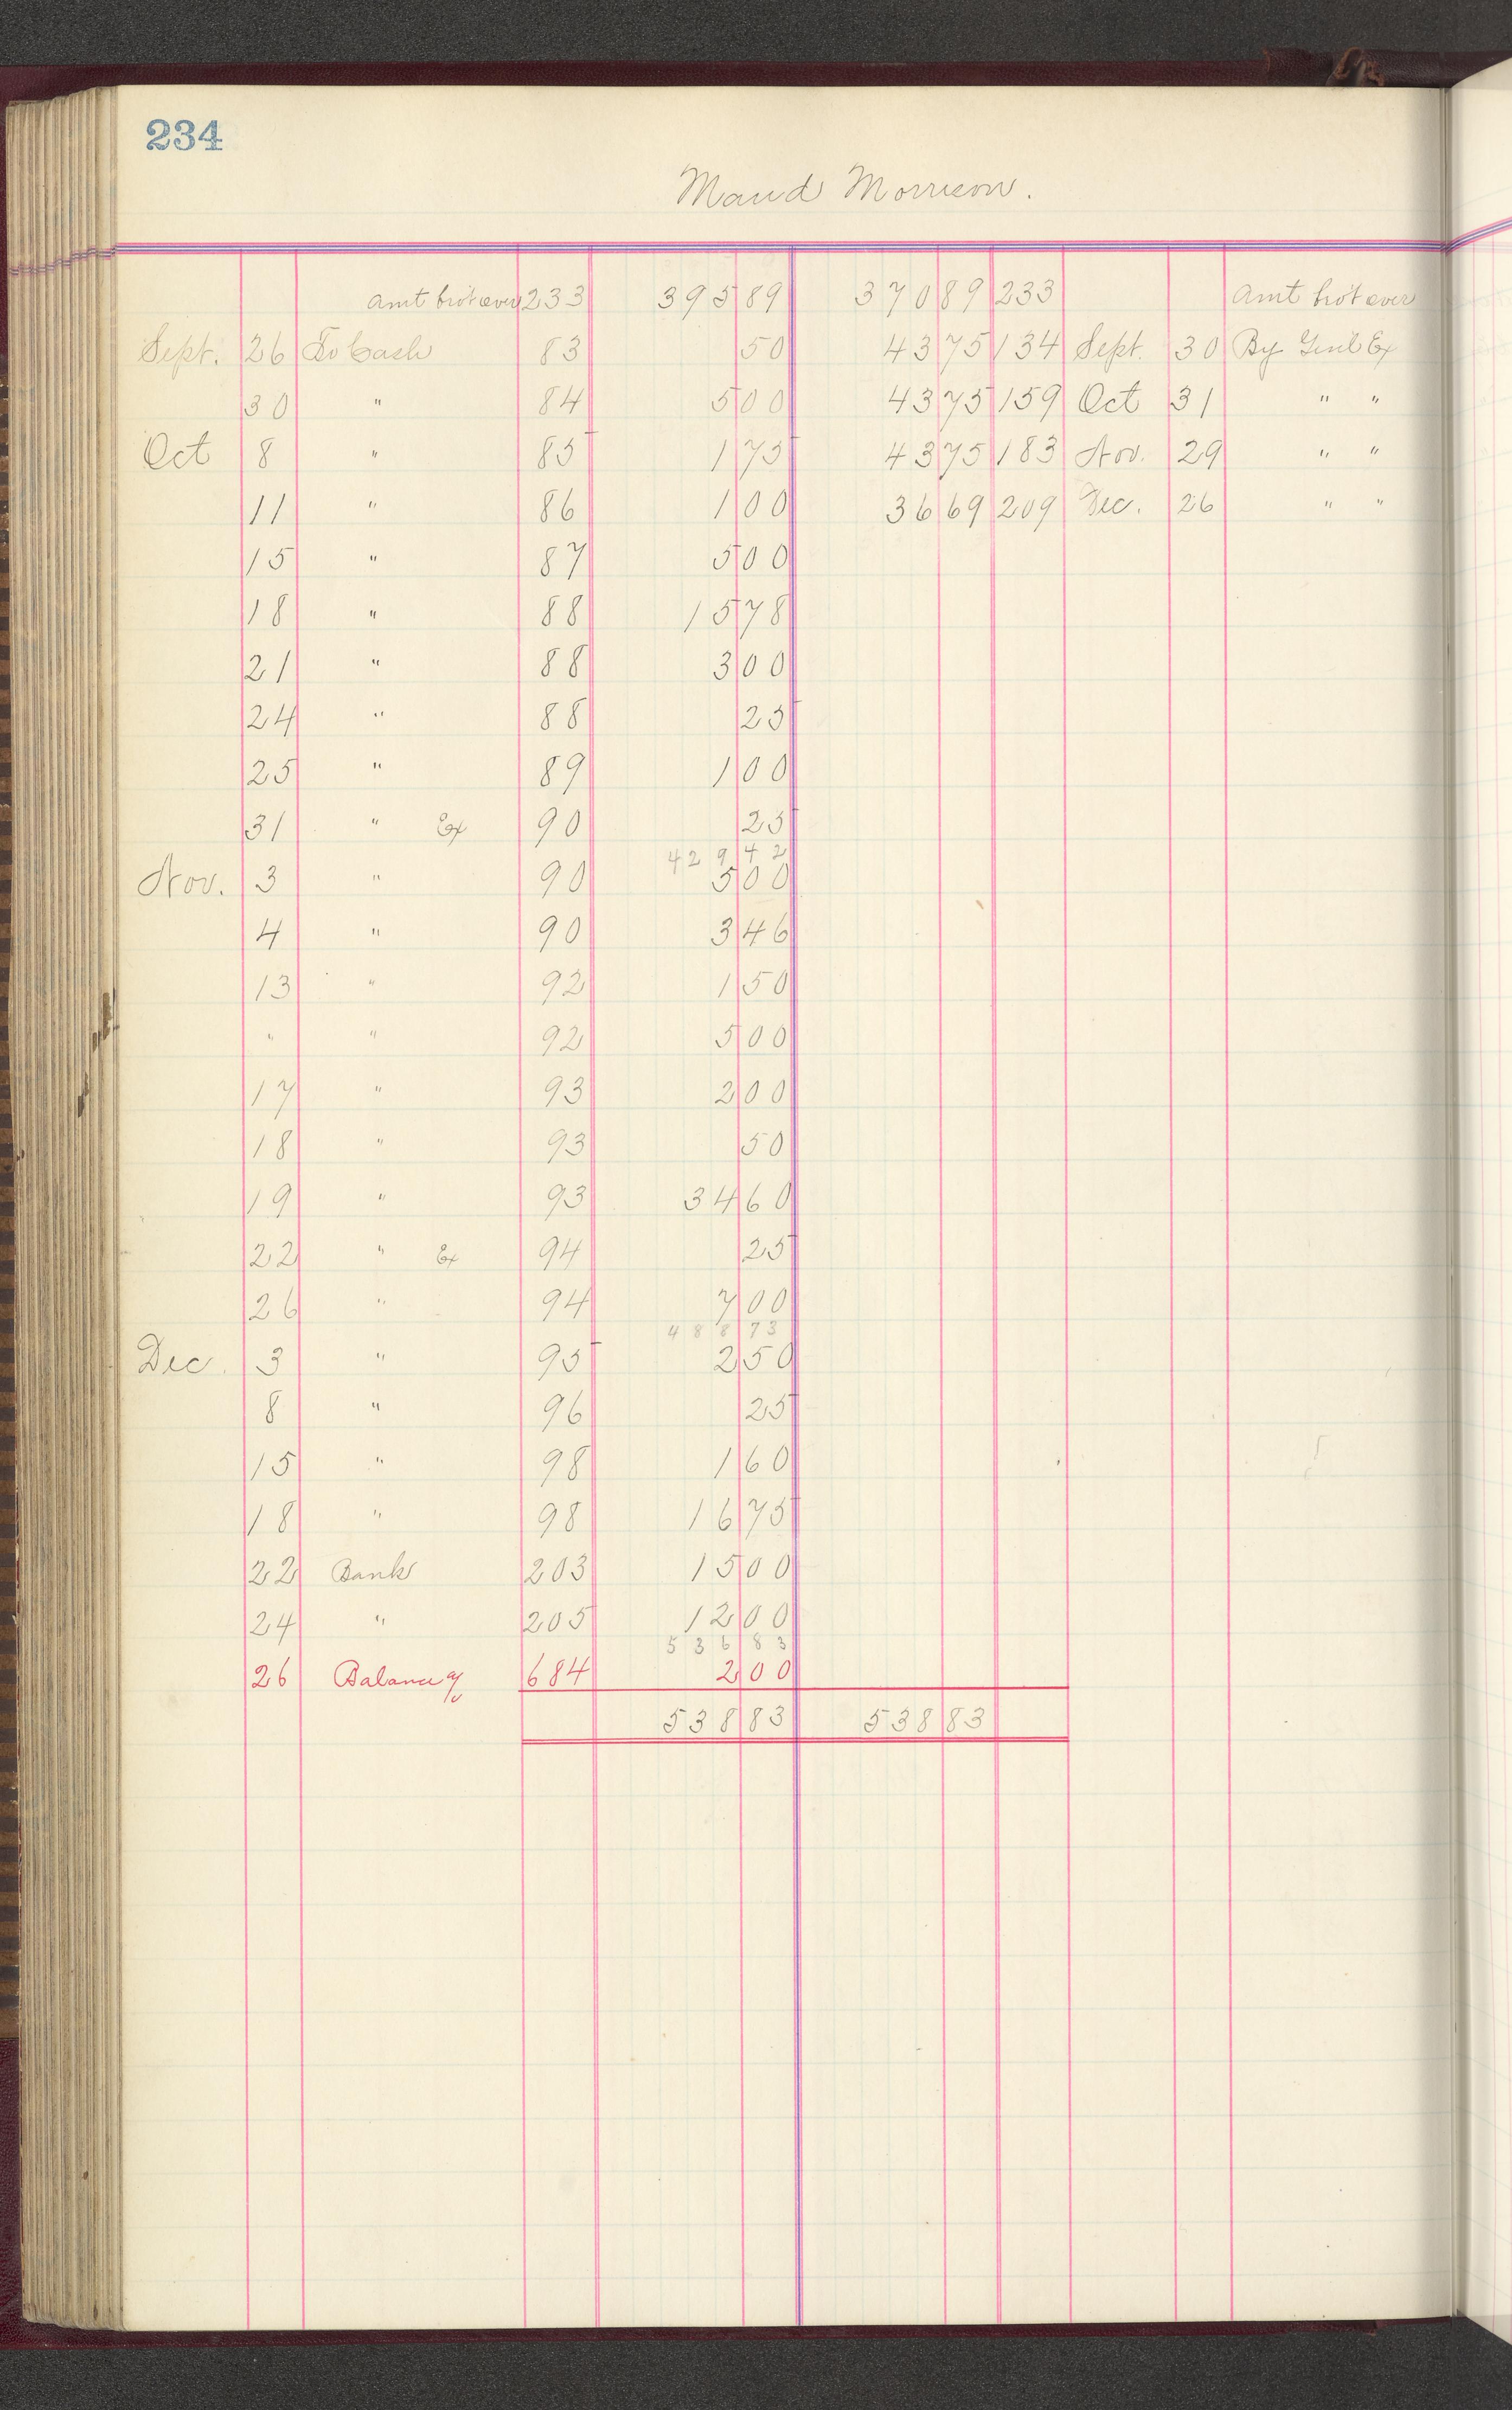 234
Maud Morrison.
Amt bro't over 233 395 89 370 89 233 Amt bro't over
Sept. 26 To Cash 83 50 43 75 134 Sept. 30 By Genl Ex
30 " 84 5 00 43 75 159 Oct 31 " "
Oct 8 " 85 1 75 43 75 183 Nov. 29 " "
11 " 86 1 00 36 69 209 Dec. 26 " "
15 " 87 5 00
18 " 88 15 78
21 " 88 3 00
24 " 88 25
25 " 89 1 00
31 " Ex 90 25
429 42
Nov. 3 " 90 5 00
4 " 90 3 46
13 " 92 1 50
" " 92 5 00
17 " 93 2 00
18 " 93 50
19 " 93 34 60
22 " Ex 94 25
26 " 94 7 00
488 73
Dec. 3 " 95 2 50
8 " 96 25
15 " 98 1 60
18 " 98 16 75
22 Bank 203 15 00
24 " 205 12 00
536 83
26 Balance 684 2 00
538 83 538 83